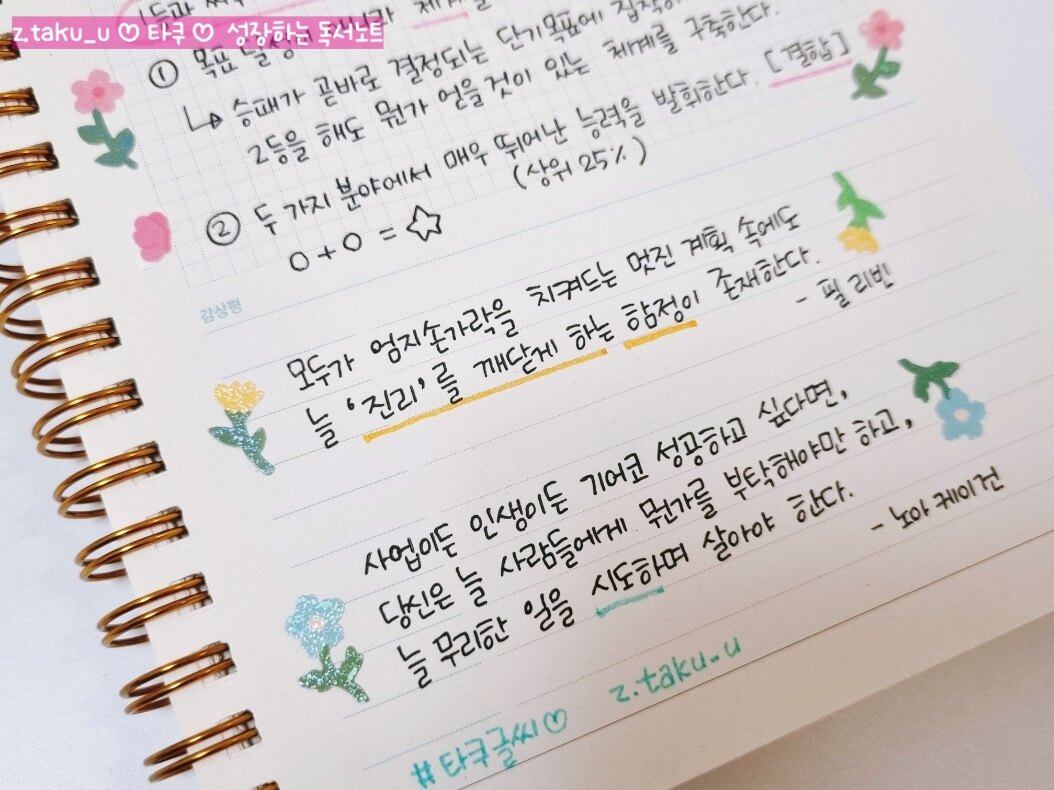 z.taku_u ♡ 타쿠 ♡ 성장하는 독서노트
① 목표 달성
↳ 승패가 곧바로 결정되는 단기목표에
2등을 해도 뭔가 얻을 것이 있는 체계를 구축한다.
② 두 가지 분야에서 매우 뛰어난 능력을 발휘한다. [결합]
(상위 25%)
○ + ○ = ☆
감상평
모두가 엄지손가락을 치켜드는 멋진 계획 속에도
늘 '진리'를 깨닫게 하는 함정이 존재한다.
- 필 리빈
사업이든 인생이든 기어코 성공하고 싶다면,
당신은 늘 사람들에게 뭔가를 부탁해야만 하고,
늘 무리한 일을 시도하며 살아야 한다.
- 노아 케이건
#타쿠글씨♡ z.taku_u